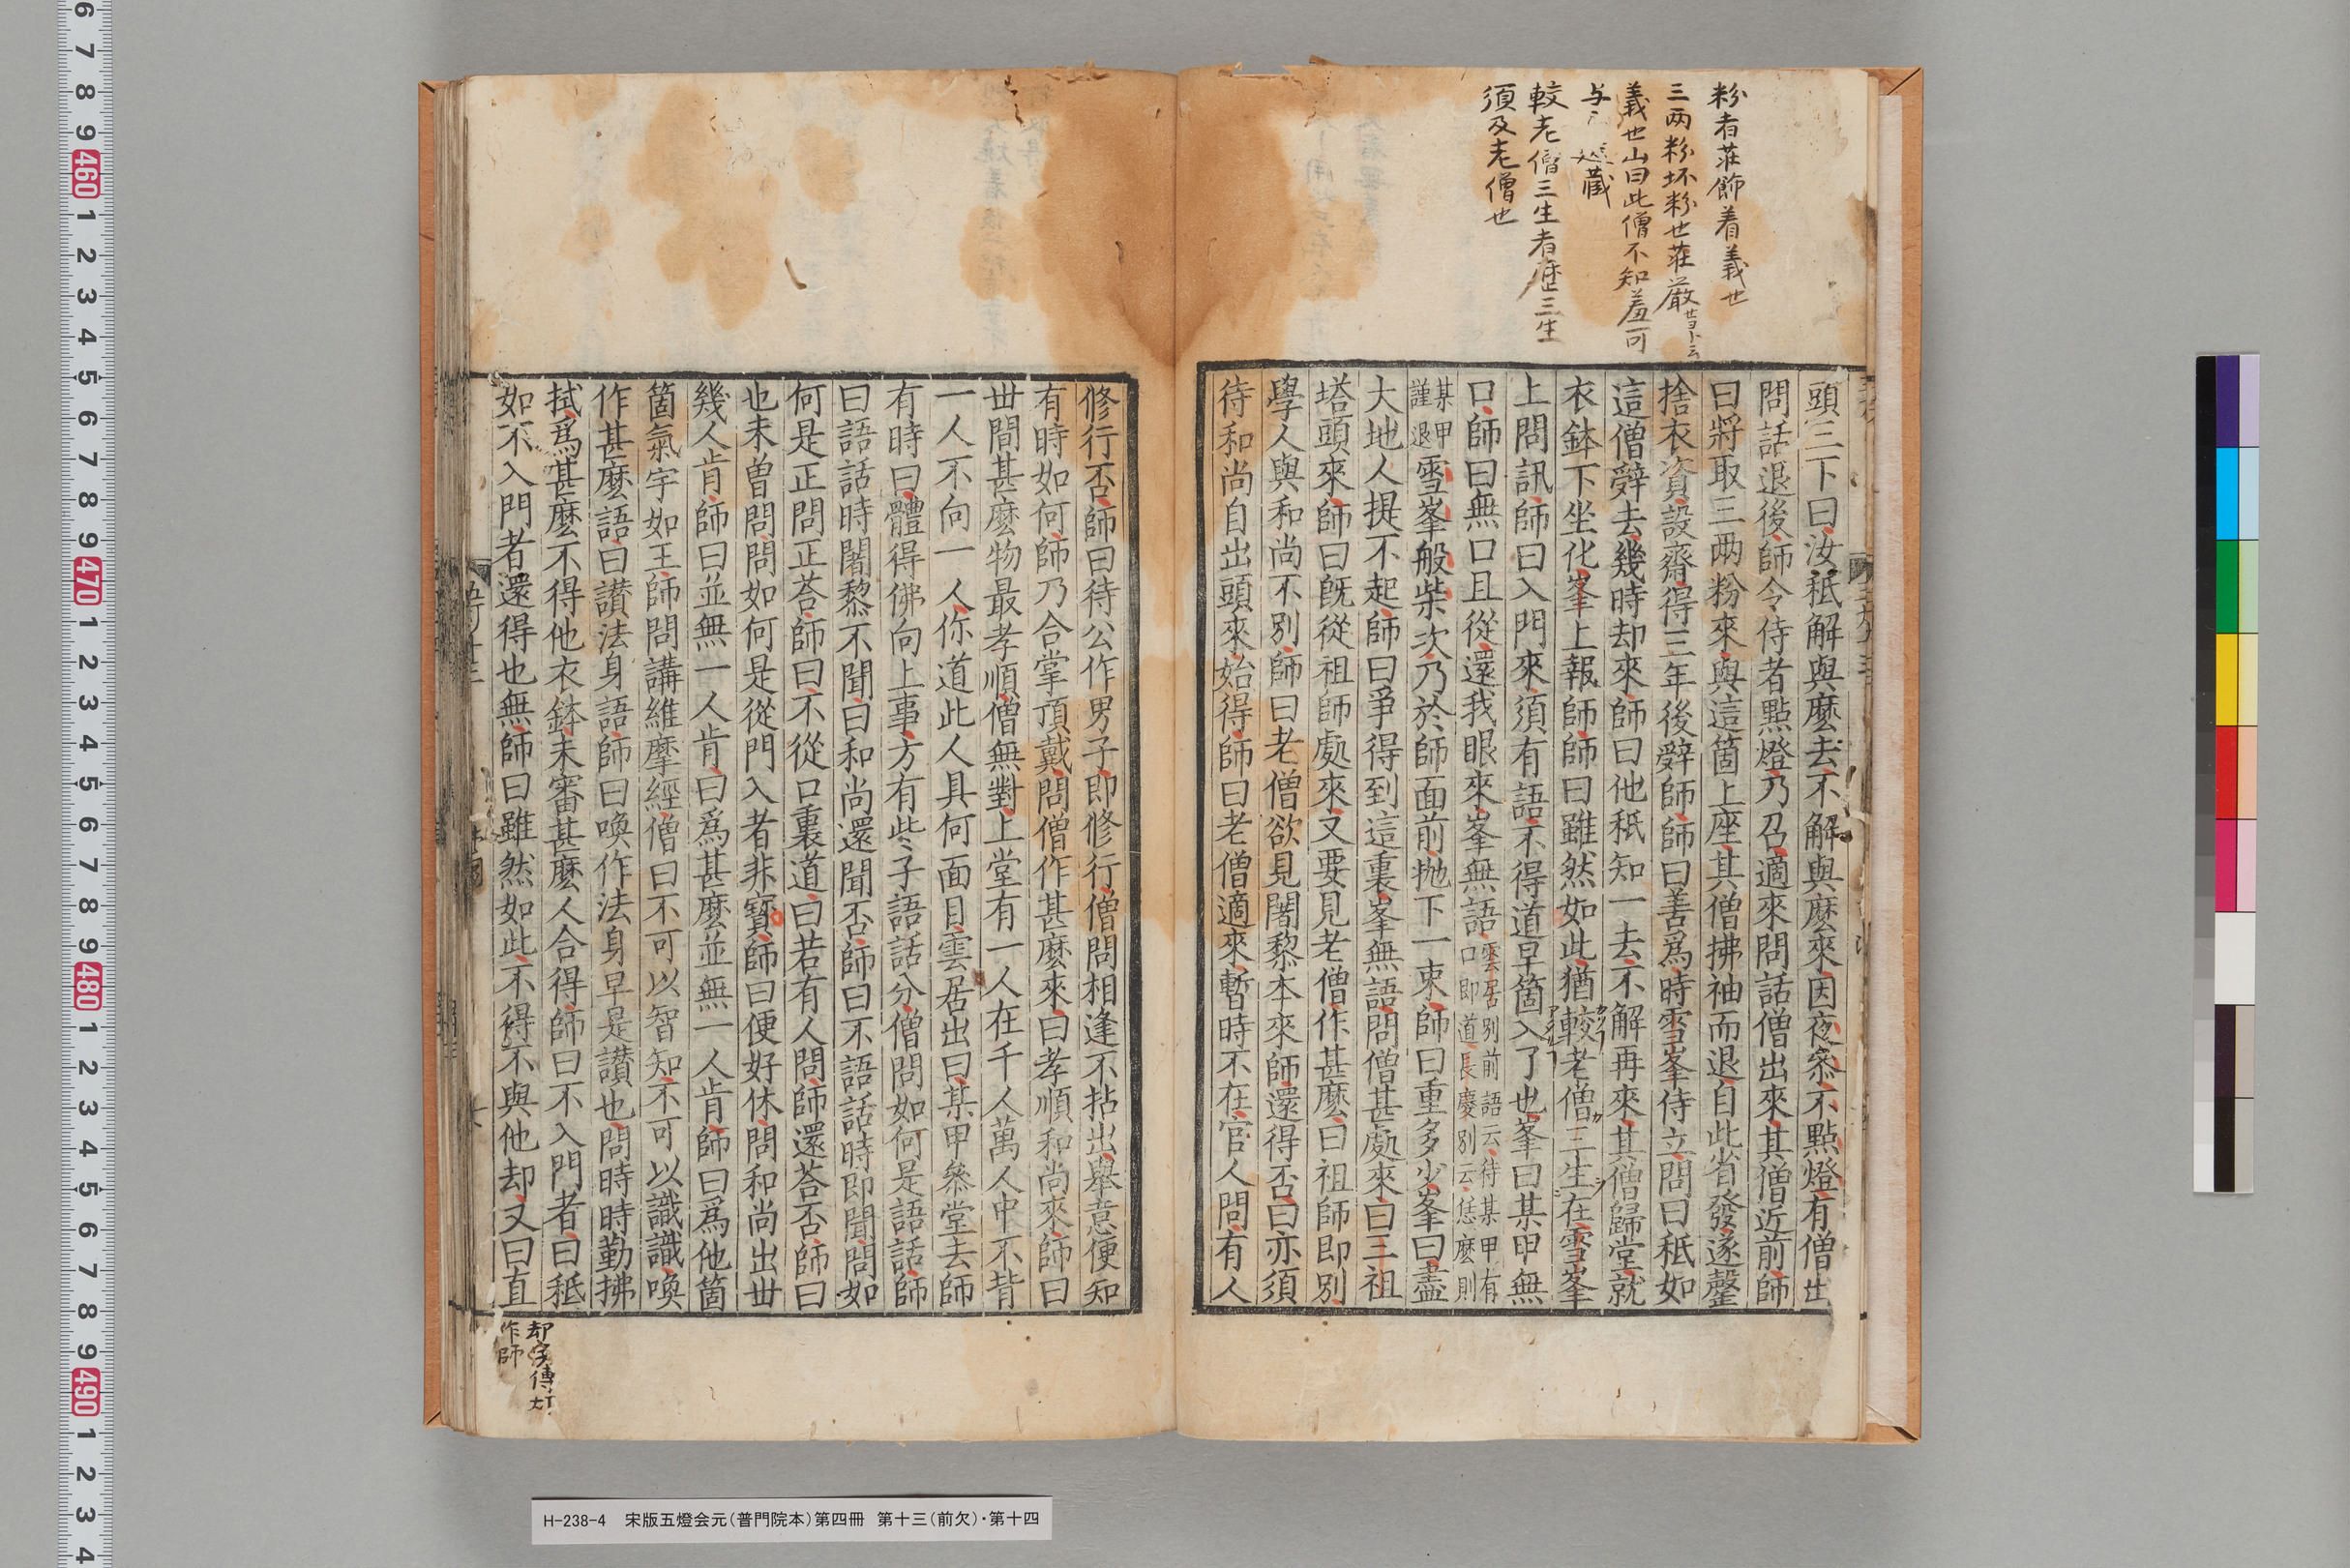 粉者莊飾着義也
三两粉坏粉也莊嚴
義也山曰此僧不知羞可
較老僧三生者歴三生
須及老僧也
頭三下曰汝秖解與麽去不解與麽來因夜叅不點燈有僧出
問話退後師令侍者點燈乃召適來問話僧出來其僧近前師
曰將取三两粉來與這箇上座其僧拂袖而退自此省發遂罄
捨衣資設齋得三年後辤師師曰善爲時雪峯侍立問曰秖如
這僧辤去幾時却來師曰他秖知一去不解再來其僧歸堂就
衣鉢下坐化峯上報師師曰雖然如此猶較老僧三生在雪峯
上問訊師曰入門來須有語不得道早箇入了也峯曰某甲無
口師曰無口且從還我眼來峯無語雲居別前語云待某甲有口即道長慶別云恁麽則
某甲謹退雪峯般柴次乃於師面前抛下一束師曰重多少峯曰盡
大地人提不起師曰爭得到這裏峯無語問僧甚處來曰三祖
塔頭來師曰旣從祖師處來又要見老僧作甚麽曰祖師即別
學人與和尚不別師曰老僧欲見闍黎本來師還得否曰亦須
待和尚自出頭來始得師曰老僧適來暫時不在官人問有人
修行否師曰待公作男子即修行僧問相逢不拈出舉意便知
有時如何師乃合掌頂戴問僧作甚麽來曰孝順和尚來師曰
丗間甚麽物最孝順僧無對上堂有一人在千人萬人中不背
一人不向一人你道此人具何面目雲居出曰某甲叅堂去師
有時曰體得佛向上事方有些子語話分僧問如何是語話師
曰語話時闍黎不聞曰和尚還聞否師曰不語話時即聞問如
何是正問正荅師曰不從口裏道曰若有人問師還荅否師曰
也未曽問問如何是從門入者非寳師曰便好休問和尚出丗
幾人肯師曰並無一人肯曰爲甚麽並無一人肯師曰爲他箇
箇氣宇如王師問講維摩經僧曰不可以智知不可以識識喚
作甚麽語曰讃法身語師曰喚作法身早是讃也問時時勤拂
拭爲甚麽不得他衣鉢未審甚麽人合得師曰不入門者曰秖
如不入門者還得也無師曰雖然如此不得不與他却又曰直
却字傳灯
作師
H-238-4　宋版五燈会元（普門院本）第四冊　第十三（前欠）・第十四